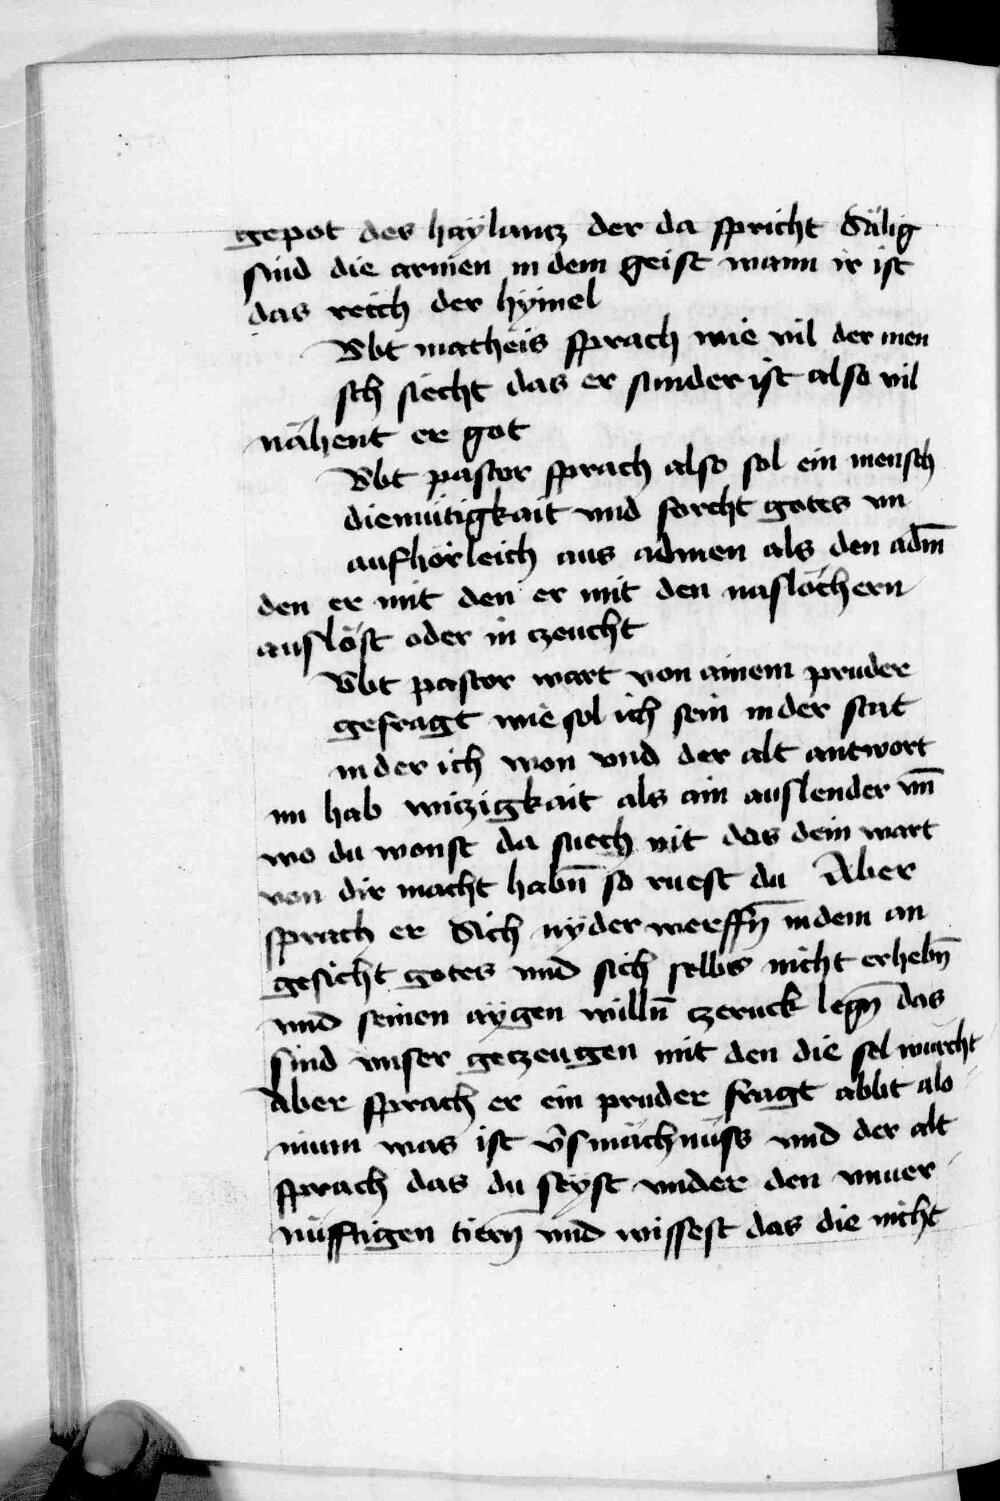 gepot des haÿlantz der da spricht Sälig
sind die armen in dem geist wann ir ist
das reich der hÿmel
Abt matheis sprach wie vil der men
sch siecht das er sunder ist also vil
nähent er got
Abt pastor sprach also sol ein mensch
diemütigkait vnd forcht gotes vn
aufhörleich aus admen als den adm̄
den er mit den er mit den naslöchern
auslöst oder in zeucht
Abt pastor wart von ainem pruder
gefragt wie sol ich sein in der stat
in der ich won vnd der alt antwort
im hab witzigkait als ain auslender vn̄
wo du wonst da suech nit das dein wart
von dir macht habn̄ so ruest du Aber
sprach er Sich nÿder werffn̄ in dem an
gesicht gotes vnd sich selbs nicht erhebn̄
vnd seinen aÿgen willn̄ czeruck legn̄ das
sind vnser geczeugen mit den die sel würcht
Aber sprach er ein pruder fragt abbt alo
nium was ist v̄smächnüss vnd der alt
sprach das du seÿst vnder den vnuer
nüfftigen tiern̄ vnd wissest das die nicht